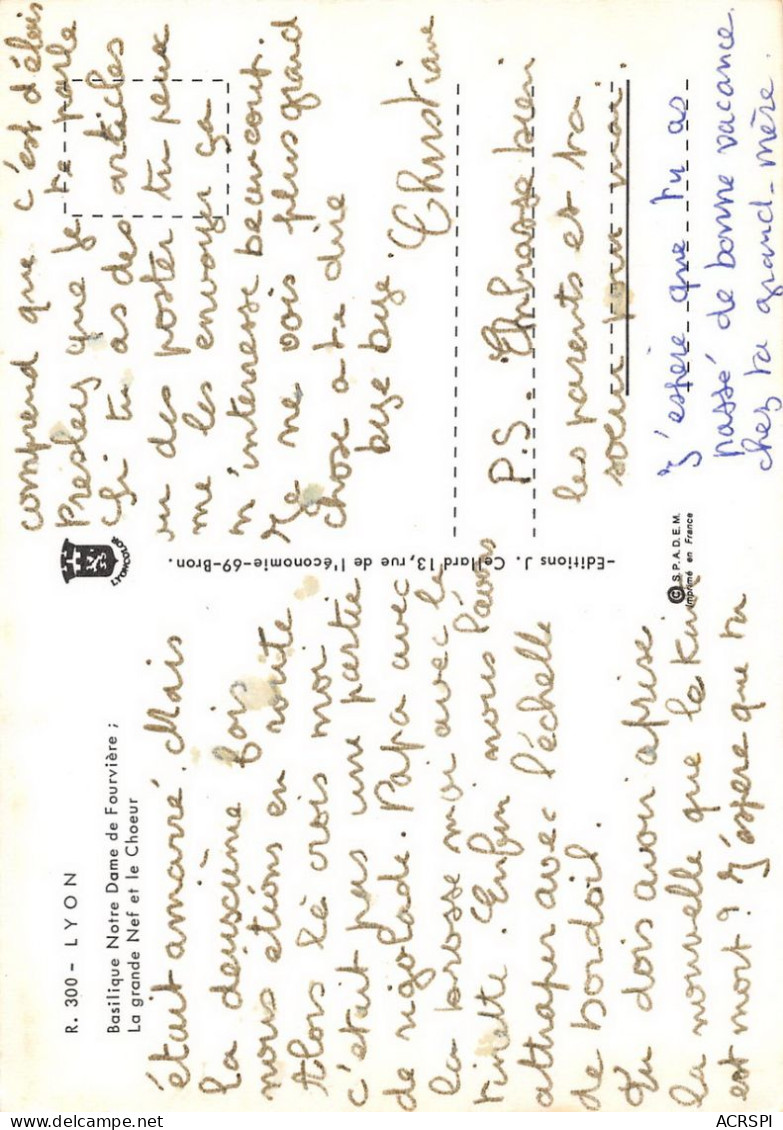 R. 300 - LYON
Basilique Notre Dame de Fourvière ;
La grande Nef et le Choeur
était amarré. Mais
la deuxième fois
nous étions en route
Alors là crois moi
c'était pas une partie
de rigolade. Papa avec
la brosse moi avec la
Enfin nous l'avons
attraper avec l'échelle
de bordoil.
Tu dois avoir aprise
la nouvelle que le King
est mort? J'espère que tu
LYONCOLOR
-Editions J. Cellard 13, rue de l'économie-69-Bron.
© S.P.A.D.E.M.
Imprimé en France
comprend que c'est d'élvis
Presley que je te parle
Si tu as des articles
ou des poster tu peux
me les envoyer ça
m'interresse beaucoup.
Je ne vois plus grand
chose a te dire
bije bije.
Christiane
P.S. Embrasse bien
les parents et ta
soeur pour moi.
J'espère que tu as
passé de bonne vacance
chez ta grand-mère.
ACRSPI